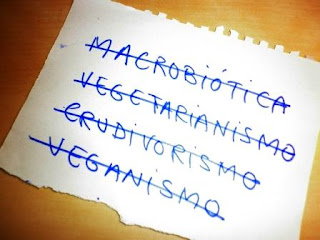 MACROBIÓTICA
VEGETARIANISMO
CRUDIVORISMO
VEGANISMO